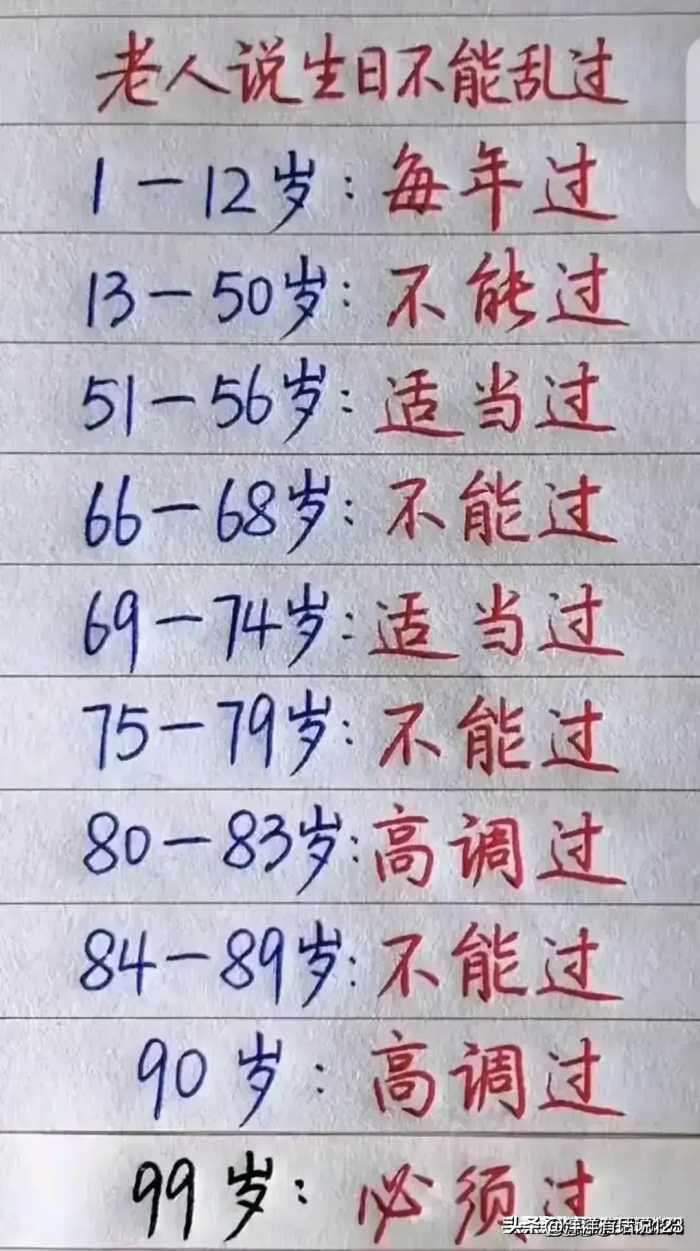 老人说生日不能乱过
1-12岁:每年过
13-50岁:不能过
51-56岁:适当过
66-68岁:不能过
69-74岁:适当过
75-79岁:不能过
80-83岁:高调过
84-89岁:不能过
90岁:高调过
99岁:必须过
头条@洋洋有话说123